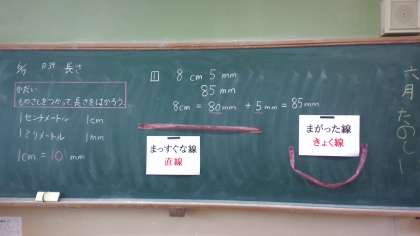 P.39 長さ
かだい
ものさしをつかって長さをはかろう。
1センチメートル 1cm
1ミリメートル 1mm
1cm = 10 mm
1 8 cm 5 mm
85 mm
8cm = 80mm + 5mm = 85mm
まっすぐな線
直線
まがった線
きょく線